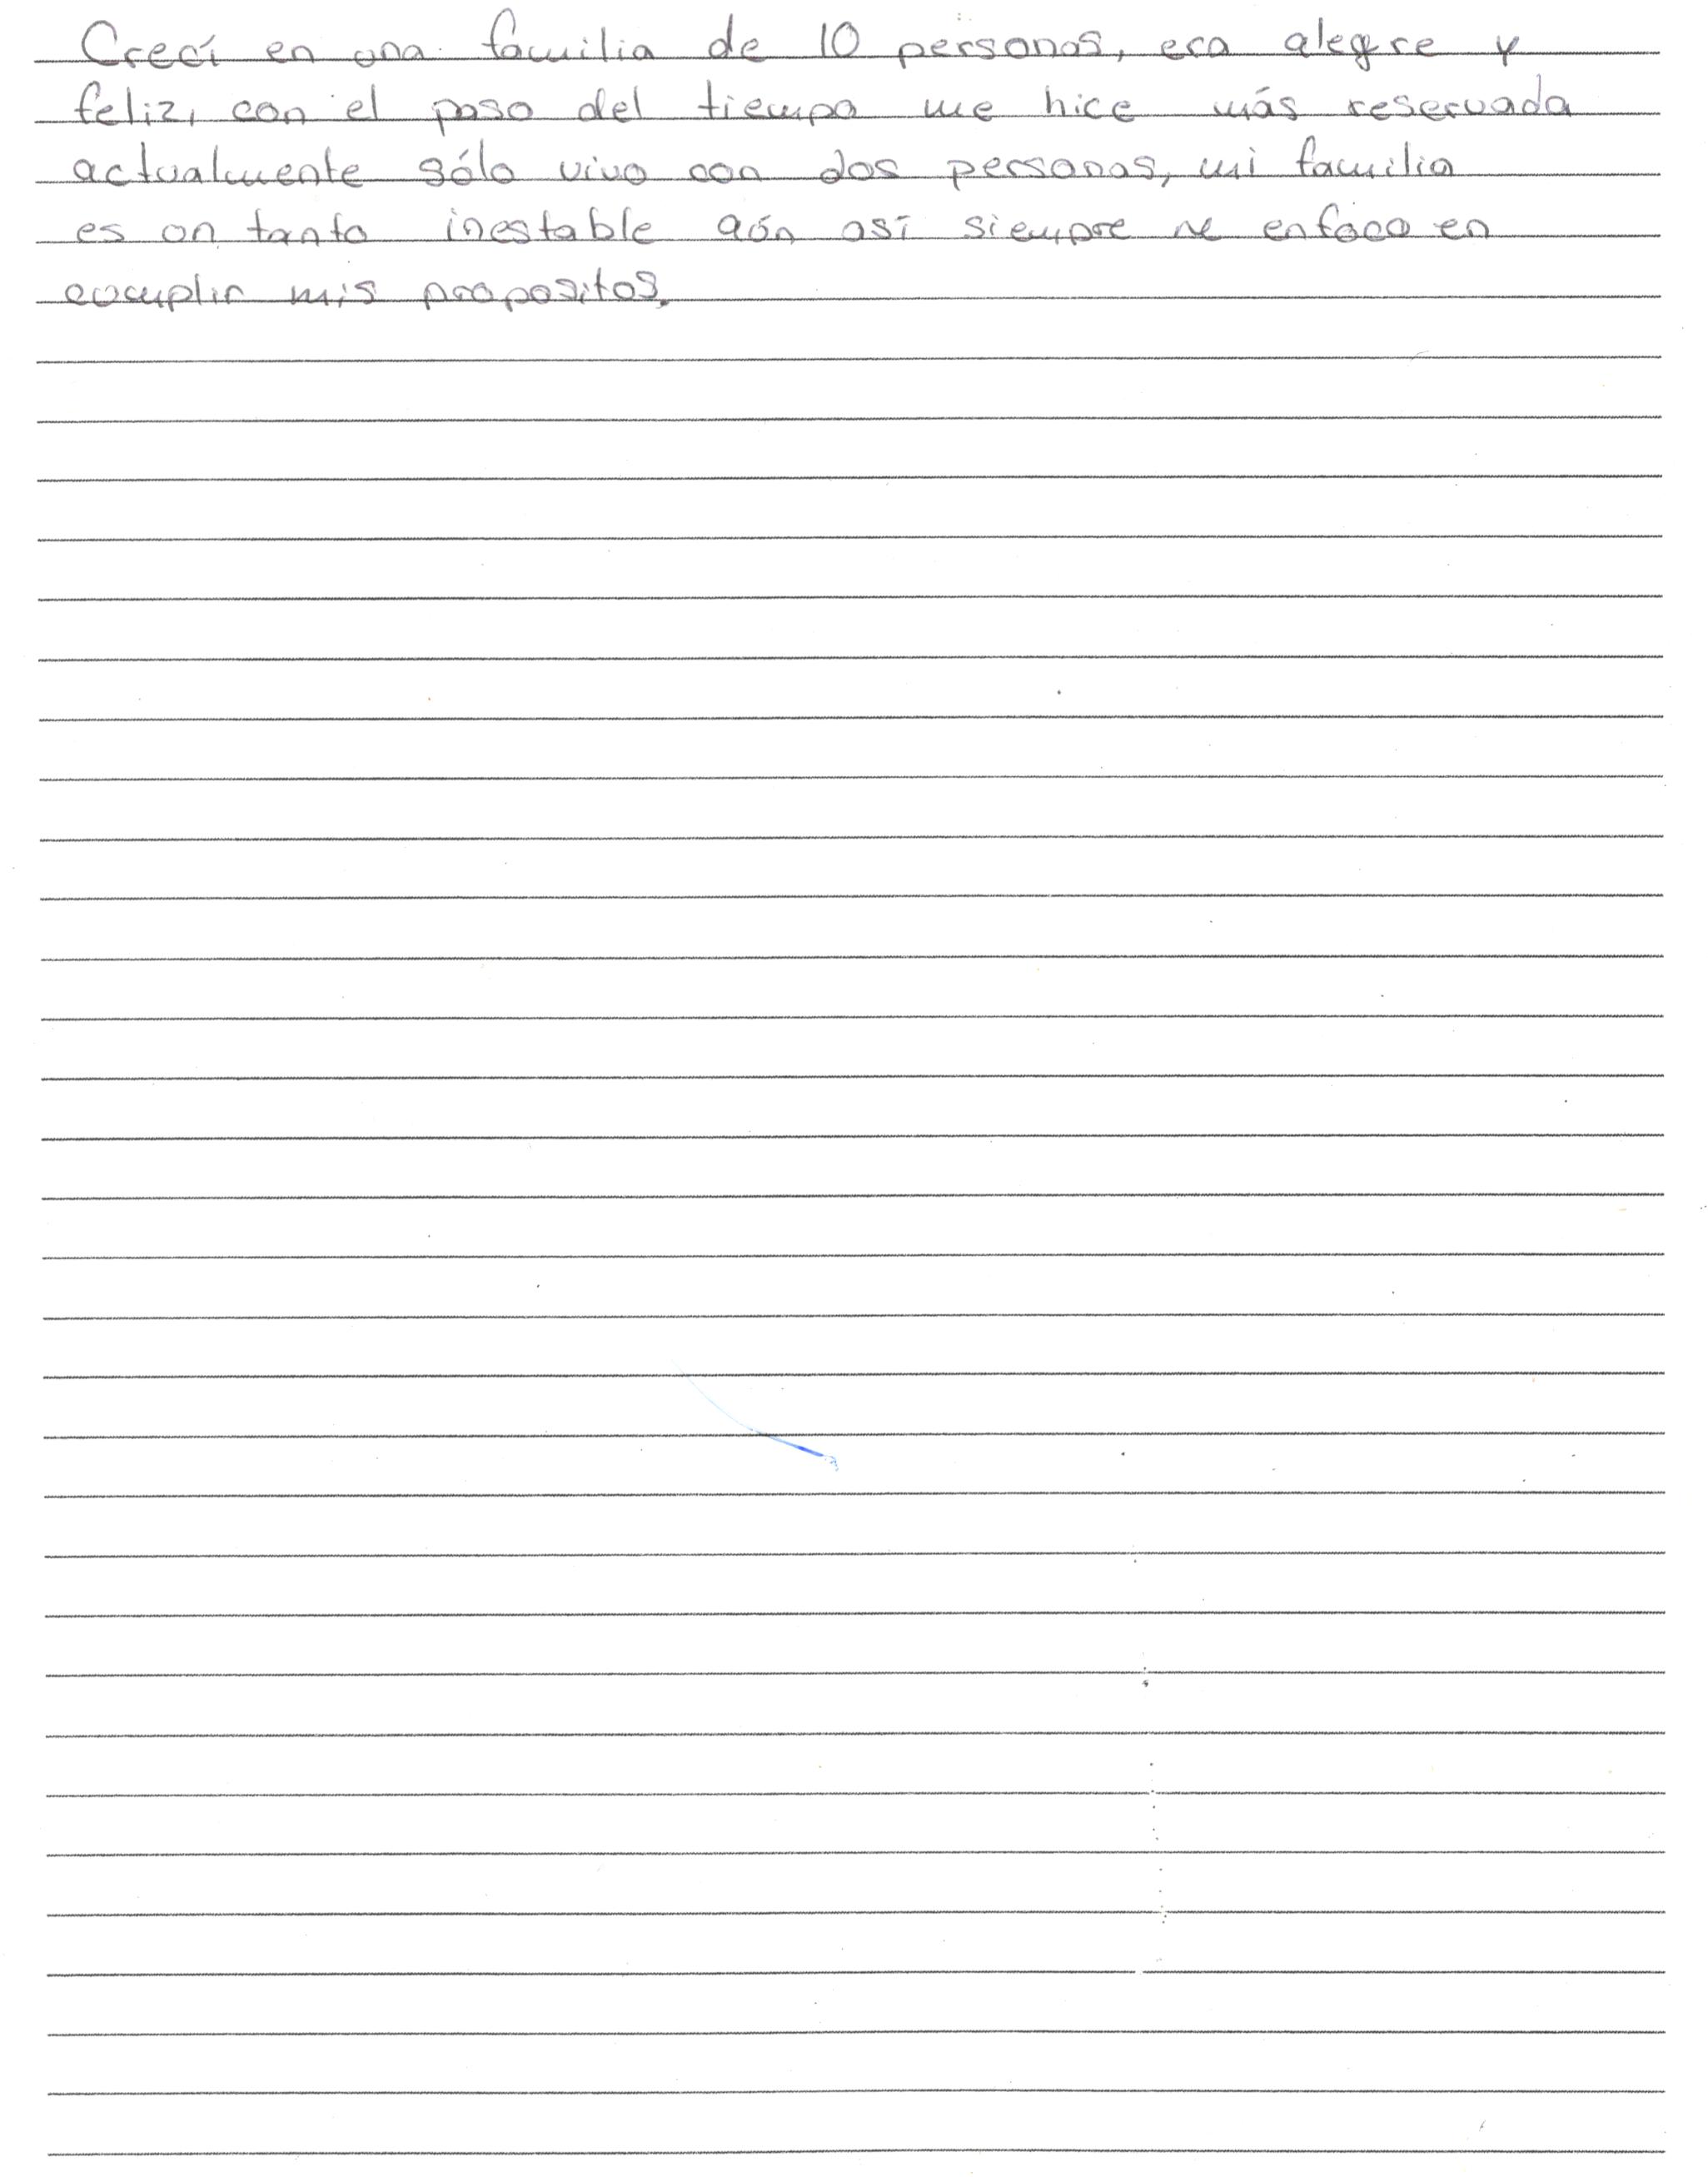 Crecí en una familia de 10 personas, era alegre y
feliz, con el paso del tiempo me hice más reservada
actualmente sólo vivo con dos personas, mi familia
es un tanto inestable aún así siempre me enfoco en
cumplir mis propositos.